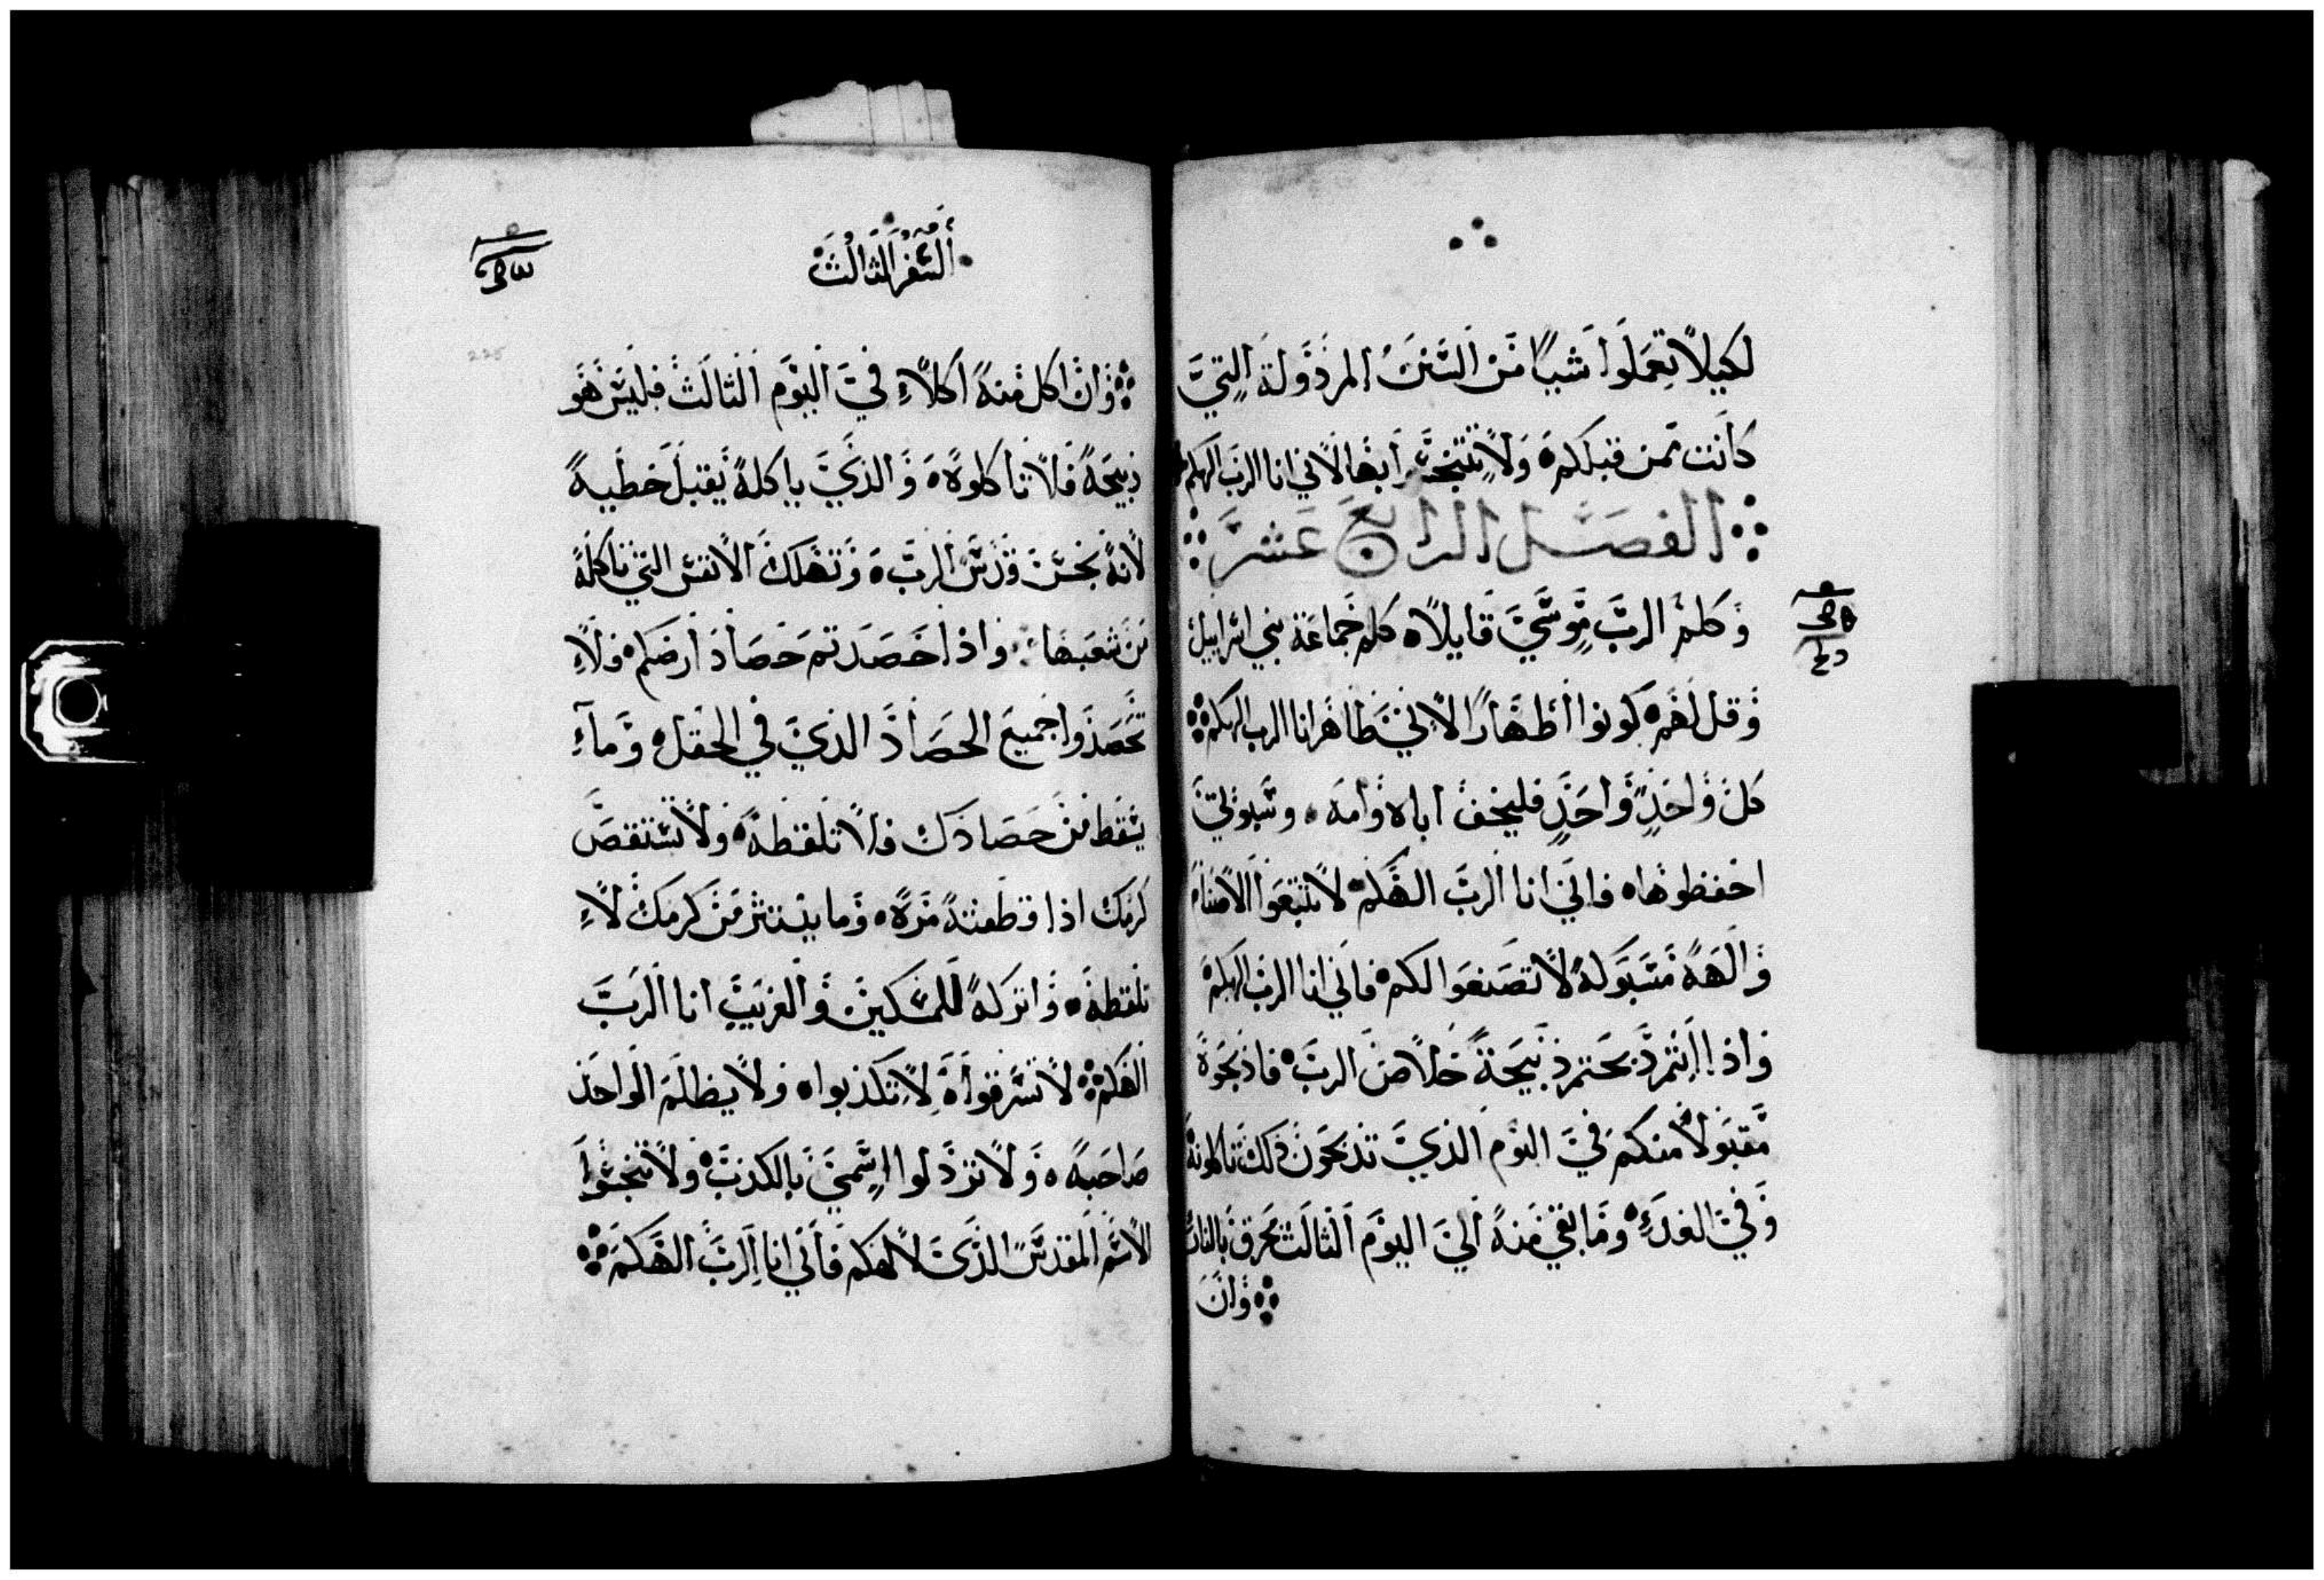 لكيلا تعملوا شيا من السنن المرذولة التي
كانت من قبلكم ولا تتنجسوا بها لاني انا الرب الهكم
الفصل الرابع عشر
وكلم الرب موسي قايلا كلم جماعة بني اسراييل
وقل لهم كونوا اطهارا لاني طاهر انا الرب الهكم
كل واحد واحد فليخف اباه وامه وسبوتي
احفظوها فاني انا الرب الهكم لا تتبعوا الاصنام
والهة مسبوكة لا تصنعوا لكم فاني انا الرب الهكم
واذا ذبحتم ذبيحة خلاص الرب فاذبحوه
مقبولا منكم في اليوم الذي تذبحون ذلك تاكلونه
وفي الغد وما بقي منه الي اليوم الثالث يحرق بالنار
وان
السفر الثالث
225
وان اكل منه اكلا في اليوم الثالث فليس هو
ذبيحة فلا تاكلوه والذي ياكله يقبل خطية
لانه نجس قدس الرب وتهلك الانفس التي تاكله
من شعبها واذا حصدتم حصاد ارضكم فلا
تحصدوا جميع الحصاد الذي في الحقل وما
يسقط من حصادك فلا تلقطه ولا تستقص
كرمك اذا قطعته مرة وما ينتثر من كرمك لا
تلقطه واتركه للمسكين والغريب انا الرب
الهكم لا تسرقوا لا تكذبوا ولا يظلم الواحد
صاحبه ولا ترذلوا اسمي بالكذب ولا تنجسوا
الاسم المقدس الذي لالهكم فاني انا الرب الهكم